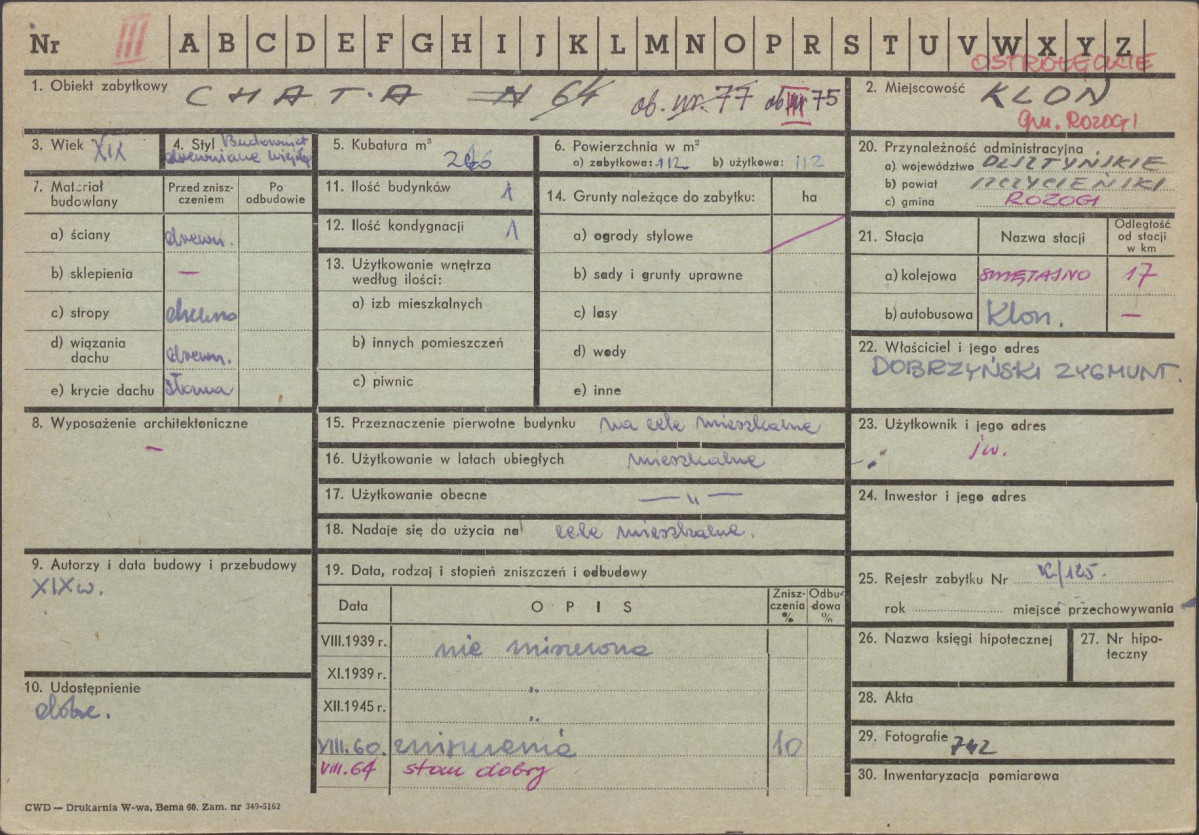 Nr III A B C D E F G H I J K L M N O P R S T U V W X Y Z
OSTROŁĘCKIE
1. Obiekt zabytkowy CHATA N 64 ob. nr. 77 ob III 75
2. Miejscowość KLON
gm. ROZOGI
3. Wiek XIX
4. Styl Budownict
drewniane wiejsk
5. Kubatura m³
6. Powierzchnia w m²
a) zabytkowa: 112 b) użytkowa: 112
20. Przynależność administracyjna
a) województwo OLSZTYŃSKIE
b) powiat SZCZYCIEŃSKI
c) gmina ROZOGI
7. Materiał budowlany
Przed zniszczeniem
Po odbudowie
a) ściany drewn.
b) sklepienia —
c) stropy drewno
d) wiązania dachu drewn.
e) krycie dachu słoma
11. Ilość budynków 1
12. Ilość kondygnacji 1
13. Użytkowanie wnętrza
według ilości:
a) izb mieszkalnych
b) innych pomieszczeń
c) piwnic
14. Grunty należące do zabytku: ha
a) ogrody stylowe
b) sady i grunty uprawne
c) lasy
d) wody
e) inne
21. Stacja Nazwa stacji Odległość
od stacji
w km
a) kolejowa ŚWIĘTAJNO 17
b) autobusowa Klon. —
22. Właściciel i jego adres
DOBRZYŃSKI ZYGMUNT.
8. Wyposażenie architektoniczne
—
15. Przeznaczenie pierwotne budynku na cele mieszkalne
16. Użytkowanie w latach ubiegłych mieszkalne
17. Użytkowanie obecne — „ —
18. Nadaje się do użycia na cele mieszkalne.
23. Użytkownik i jego adres
jw.
24. Inwestor i jego adres
9. Autorzy i data budowy i przebudowy
XIX w.
19. Data, rodzaj i stopień zniszczeń i odbudowy
Data OPIS Zniszczenia % Odbudowa %
VIII.1939 r. nie niszczona
XI.1939 r. „
XII.1945 r. „
VIII.60. zniszczenia 10
VIII.64 stan dobry
25. Rejestr zabytku Nr
rok miejsce przechowywania
26. Nazwa księgi hipotecznej
27. Nr hipoteczny
10. Udostępnienie
dobre.
28. Akta
29. Fotografie 742
30. Inwentaryzacja pomiarowa
CWD — Drukarnia W-wa, Bema 60. Zam. nr 349-5162